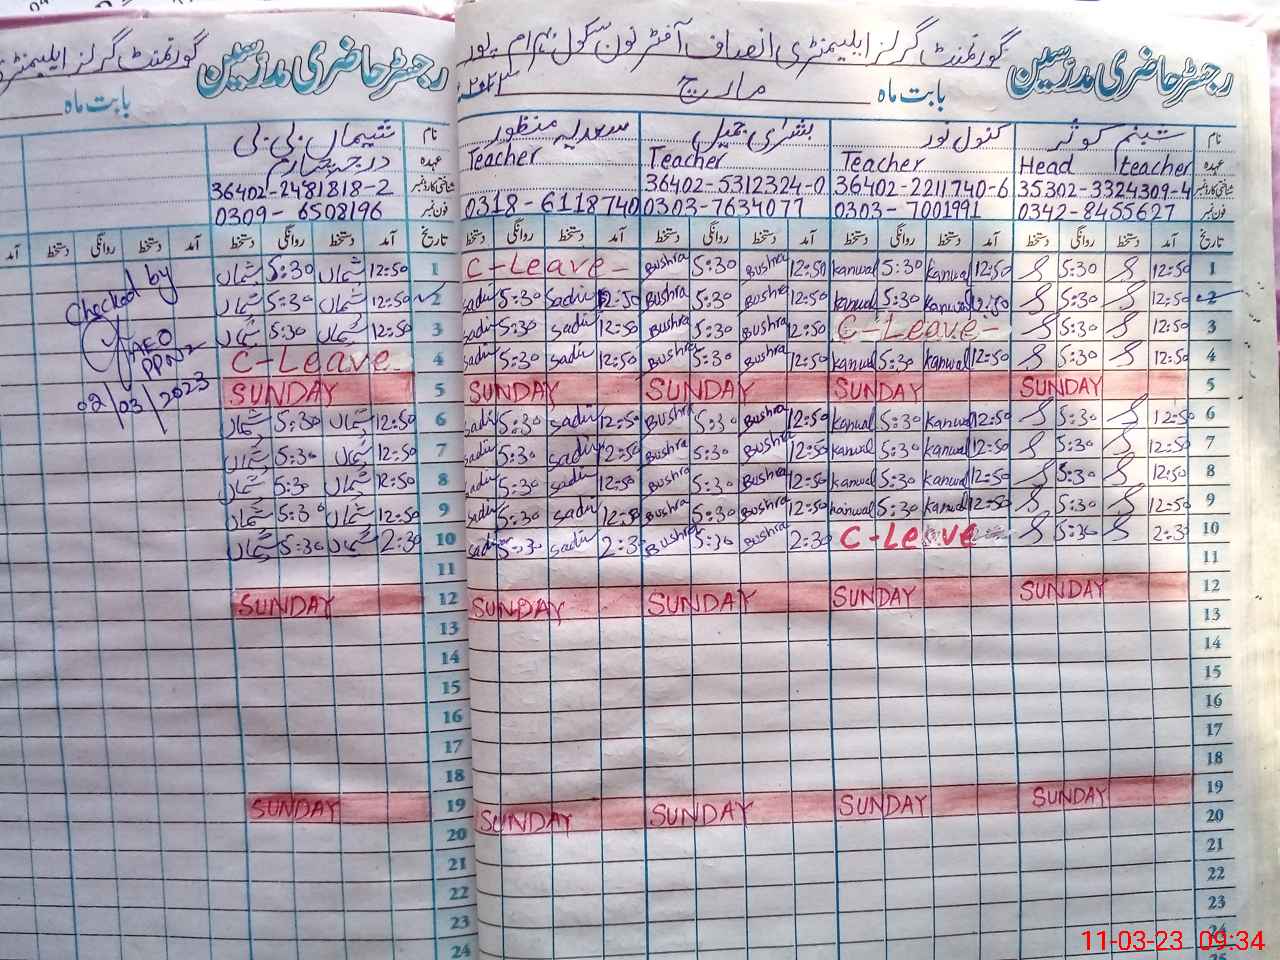 گورنمنٹ گرلز ایلیمنٹری انصاف آفٹر نون سکول
رجسٹر حاضری مدرسین
بابت ماہ مارچ ۲۰۲۳ء
نام شبنم کوثر کنول نور بشریٰ جمیل سعدیہ منظور
عہدہ Head teacher Teacher Teacher Teacher
شناختی کارڈ نمبر 35302-3324309-4 36402-2211740-6 36402-5312324-0
فون نمبر 0342-8455627 0303-7001991 0303-7634077 0318-6118740
تاریخ آمد دستخط روانگی دستخط آمد دستخط روانگی دستخط آمد دستخط روانگی دستخط آمد دستخط روانگی دستخط
1 12:50 5:30 12:50 Kanwal 5:30 Kanwal 12:50 Bushra 5:30 Bushra C-Leave
2 12:50 5:30 12:50 Kanwal 5:30 Kanwal 12:50 Bushra 5:30 Bushra 12:50 Sadia 5:30 Sadia
3 12:50 5:30 C-Leave 12:50 Bushra 5:30 Bushra 12:50 Sadia 5:30 Sadia
4 12:50 5:30 12:50 Kanwal 5:30 Kanwal 12:50 Bushra 5:30 Bushra 12:50 Sadia 5:30 Sadia
5 SUNDAY SUNDAY SUNDAY SUNDAY
6 12:50 5:30 12:50 Kanwal 5:30 Kanwal 12:50 Bushra 5:30 Bushra 12:50 Sadia 5:30 Sadia
7 12:50 5:30 12:50 Kanwal 5:30 Kanwal 12:50 Bushra 5:30 Bushra 12:50 Sadia 5:30 Sadia
8 12:50 5:30 12:50 Kanwal 5:30 Kanwal 12:50 Bushra 5:30 Bushra 12:50 Sadia 5:30 Sadia
9 12:50 5:30 12:50 Kanwal 5:30 Kanwal 12:50 Bushra 5:30 Bushra 12:50 Sadia 5:30 Sadia
10 2:30 5:30 C-Leave 2:30 Bushra 5:30 Bushra 2:30 Sadia 5:30 Sadia
11
12 SUNDAY SUNDAY SUNDAY SUNDAY
13
14
15
16
17
18
19 SUNDAY SUNDAY SUNDAY SUNDAY
20
21
22
23
24
25
گورنمنٹ گرلز ایلیمنٹری
رجسٹر حاضری مدرسین
بابت ماہ
نام شیماں بی بی
عہدہ درجہ چہارم
شناختی کارڈ نمبر 36402-2481818-2
فون نمبر 0309-6508196
تاریخ آمد دستخط روانگی دستخط آمد دستخط روانگی دستخط آمد
1 12:50 شیماں 5:30 شیماں
2 12:50 شیماں 5:30 شیماں
3 12:50 شیماں 5:30 شیماں
4 C-Leave
5 SUNDAY
6 12:50 شیماں 5:30 شیماں
7 12:50 شیماں 5:30 شیماں
8 12:50 شیماں 5:30 شیماں
9 12:50 شیماں 5:30 شیماں
10 2:30 شیماں 5:30 شیماں
11
12 SUNDAY
13
14
15
16
17
18
19 SUNDAY
20
21
22
23
24
Checked by
AEO
02/03/2023
11-03-23 09:34